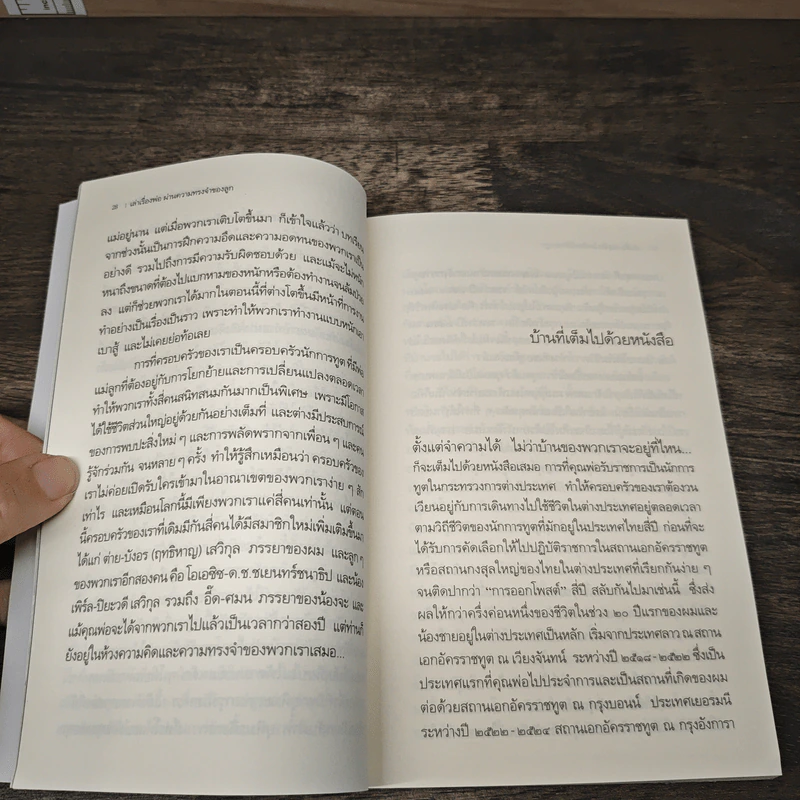 28 | เล่าเรื่องพ่อ ผ่านความทรงจำของลูก
แม่อยู่นาน แต่เมื่อพวกเราเติบโตขึ้นมา ก็เข้าใจแล้วว่า บทเรียน
จากช่วงนั้นเป็นการฝึกความอึดและความอดทนของพวกเราเป็น
อย่างดี รวมไปถึงการมีความรับผิดชอบด้วย และแม้จะไม่หนัก
หนาถึงขนาดที่ต้องไปแบกหามของหนักหรือต้องทำงานจนล้มป่วย
ลง แต่ก็ช่วยพวกเราได้มากในตอนนี้ที่ต่างโตขึ้นมีหน้าที่การงาน
ทำอย่างเป็นเรื่องเป็นราว เพราะทำให้พวกเราทำงานแบบหนักเอา
เบาสู้ และไม่เคยย่อท้อเลย
การที่ครอบครัวของเราเป็นครอบครัวนักการทูต ที่มีพ่อ
แม่ลูกที่ต้องอยู่กับการโยกย้ายและการเปลี่ยนแปลงตลอดเวลา
ทำให้พวกเราทั้งสี่คนสนิทสนมกันมากเป็นพิเศษ เพราะมีโอกาส
ได้ใช้ชีวิตส่วนใหญ่อยู่ด้วยกันอย่างเต็มที่ และต่างมีประสบการณ์
ของการพบปะสิ่งใหม่ ๆ และการพลัดพรากจากเพื่อน ๆ และคน
รู้จักร่วมกัน จนหลาย ๆ ครั้ง ทำให้รู้สึกเหมือนว่า ครอบครัวของ
เราไม่ค่อยเปิดรับใครเข้ามาในอาณาเขตของพวกเราง่าย ๆ สัก
เท่าไร และเหมือนโลกนี้มีเพียงพวกเราแค่สี่คนเท่านั้น แต่ตอน
นี้ครอบครัวของเราที่เดิมมีกันสี่คนได้มีสมาชิกใหม่เพิ่มเติมขึ้นมา
ได้แก่ ต่าย-บังอร (ฤทธิหาญ) เสวิกุล ภรรยาของผม และลูก ๆ
ของพวกเราอีกสองคน คือ โอเอซิซ-ด.ช.ชเยนทร์ชนาธิป และน้อง
เพิร์ล-ปิยะวดี เสวิกุล รวมถึง อี๊ด-ศมน ภรรยาของน้องจะ และ
แม้คุณพ่อจะได้จากพวกเราไปแล้วเป็นเวลากว่าสองปี แต่ท่านก็
ยังอยู่ในห้วงความคิดและความทรงจำของพวกเราเสมอ...
บ้านที่เต็มไปด้วยหนังสือ
ตั้งแต่จำความได้ ไม่ว่าบ้านของพวกเราจะอยู่ที่ไหน...
ก็จะเต็มไปด้วยหนังสือเสมอ การที่คุณพ่อรับราชการเป็นนักการ
ทูตในกระทรวงการต่างประเทศ ทำให้ครอบครัวของเราต้องวน
เวียนอยู่กับการเดินทางไปใช้ชีวิตในต่างประเทศอยู่ตลอดเวลา
ตามวิถีชีวิตของนักการทูตที่มักอยู่ในประเทศไทยสี่ปี ก่อนที่จะ
ได้รับการคัดเลือกให้ไปปฏิบัติราชการในสถานเอกอัครราชทูต
หรือสถานกงสุลใหญ่ของไทยในต่างประเทศที่เรียกกันง่าย ๆ
จนติดปากว่า “การออกโพสต์” สี่ปี สลับกันไปมาเช่นนี้ ซึ่งส่ง
ผลให้กว่าครึ่งค่อนหนึ่งของชีวิตในช่วง ๒๐ ปีแรกของผมและ
น้องชายอยู่ในต่างประเทศเป็นหลัก เริ่มจากประเทศลาว ณ สถาน
เอกอัครราชทูต ณ เวียงจันทน์ ระหว่างปี ๒๕๑๘-๒๕๒๒ ซึ่งเป็น
ประเทศแรกที่คุณพ่อไปประจำการและเป็นสถานที่เกิดของผม
ต่อด้วยสถานเอกอัครราชทูต ณ กรุงบอนน์ ประเทศเยอรมนี
ระหว่างปี ๒๕๒๒-๒๕๒๔ สถานเอกอัครราชทูต ณ กรุงอังการา